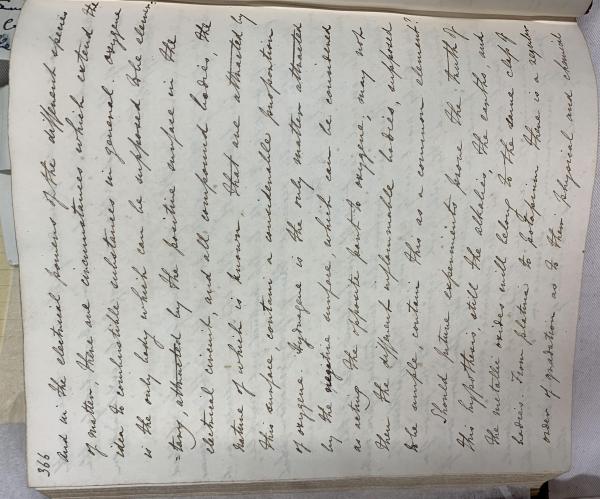 366
And in the electrical powers of the different species
of matter, there are circumstances which extend the
idea to combustible substances in general. oxygene
is the only body which can be supposed to be elemen-
tary, attracted by the positive surface in the
electrical circuit, and all compound bodies, the
nature of which is known that are attracted by
this surface, contain a considerable proportion
of oxygene. Hydrogene is the only matter attracted
by the negative surface, which can be considered
as acting the opposite part to oxygene; may not
then the different inflammable bodies, supposed
to be simple, contain this as a common element?
Should future experiments prove the truth of
this hypothesis, still the alkalies, the earths and
the metallic oxides will belong to the same class of
bodies. From platina to potassium there is a regular
order of gradation as to their physical and chemical